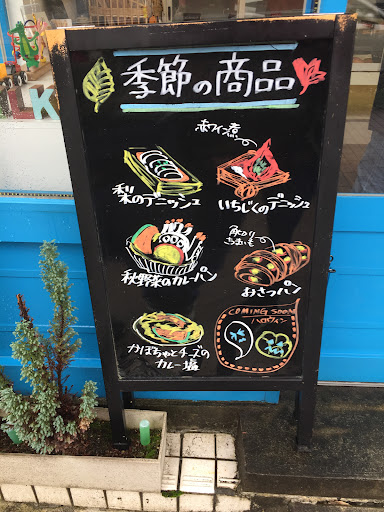 季節の商品
赤ワイン煮
梨のデニッシュ
いちじくのデニッシュ
秋野菜のカレーパン
おさつパン
COMING SOON
ハロウィン
かぼちゃとチーズの
カレー塩
K